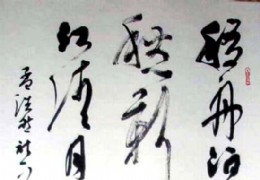 移舟泊
愁新
江清月
孟浩然诗